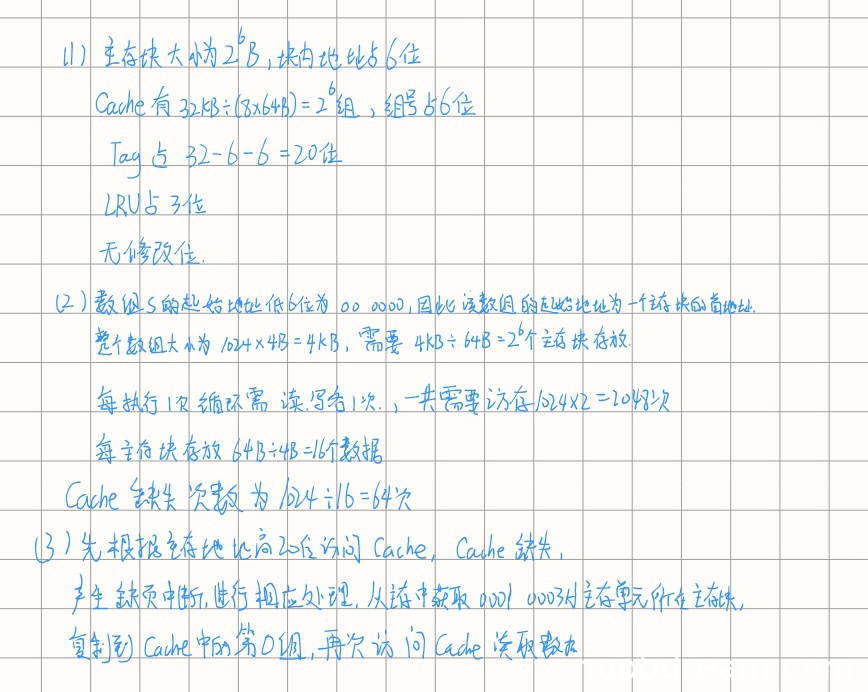 (1) 主存块大小为2^6B,块内地址占6位
Cache有 32KB÷(8×64B)=2^6组,组号占6位
Tag占 32-6-6=20位
LRU占3位
无修改位.
(2) 数组S的起始地址低6位为 00 0000,因此该数组的起始地址为一个主存块的首地址.
整个数组大小为 1024×4B=4KB,需要 4KB÷64B=2^6个主存块存放.
每执行1次循环需 读.写各1次.,一共需要访存1024×2=2048次
每主存块存放 64B÷4B=16个数据
Cache 缺失次数为 1024÷16=64次
(3) 先根据主存地址高20位访问 Cache, Cache 缺失,
产生缺页中断,进行相应处理,从主存中获取0001 0003H主存单元所在主存块,
复制到 Cache中的第0组,再次访问Cache 读取数据